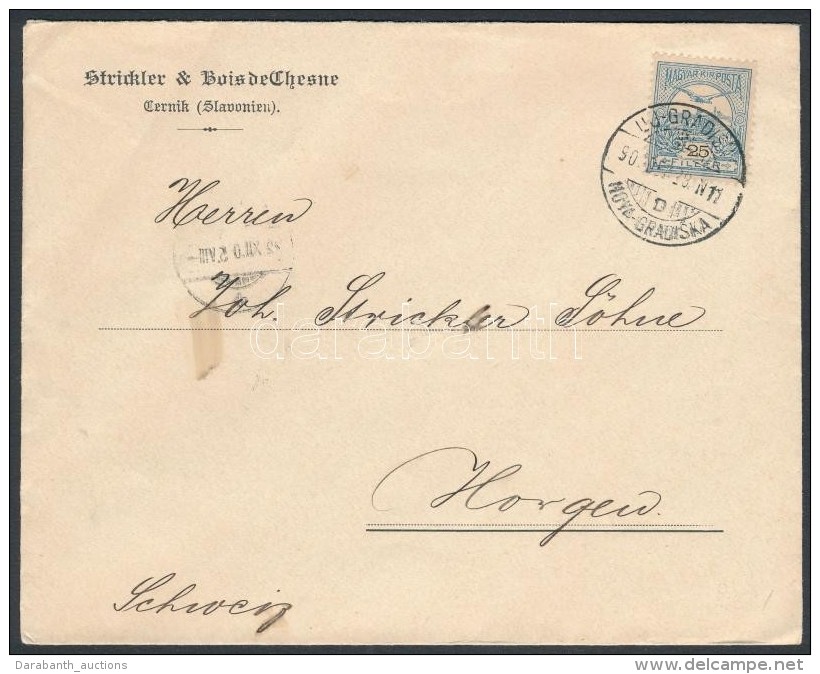 Strickler & BoisdeChesne
Cernik (Slavonien).
MAGYAR KIR. POSTA
25
FILLÉR
NOVA-GRADIŠKA
D
Herren
Joh. Strickler Söhne
Horgen.
Schweiz
darabanth
Darabanth_auctions
www.delcampe.net